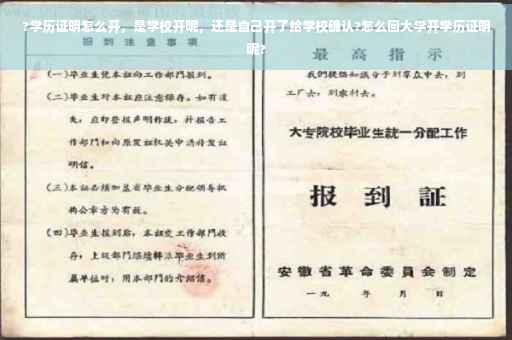 ?学历证明怎么开，是学校开呢，还是自己开了给学校确认?怎么回大学开学历证明
呢?
报到注意事项
(一)毕业生凭本证向工作部门报到。
(二)毕业生对本证应注意保存。如有遗
失，应即登报声明作废，并报告工
作部门和向原发证机关申请补发证
明信。
(三)本证必须加盖省毕业生分配领导机
构公章方为有效。
(四)毕业生报到后，本证交工作部门收
存；上级部门继续转派毕业生到所
属单位时，用本部门的介绍信。
最高指示
我们提倡知识分子到群众中去，到
工厂去，到农村去。
大专院校毕业生統一分配工作
报到証
安徽省革命委員会制定
一九 年 月 日